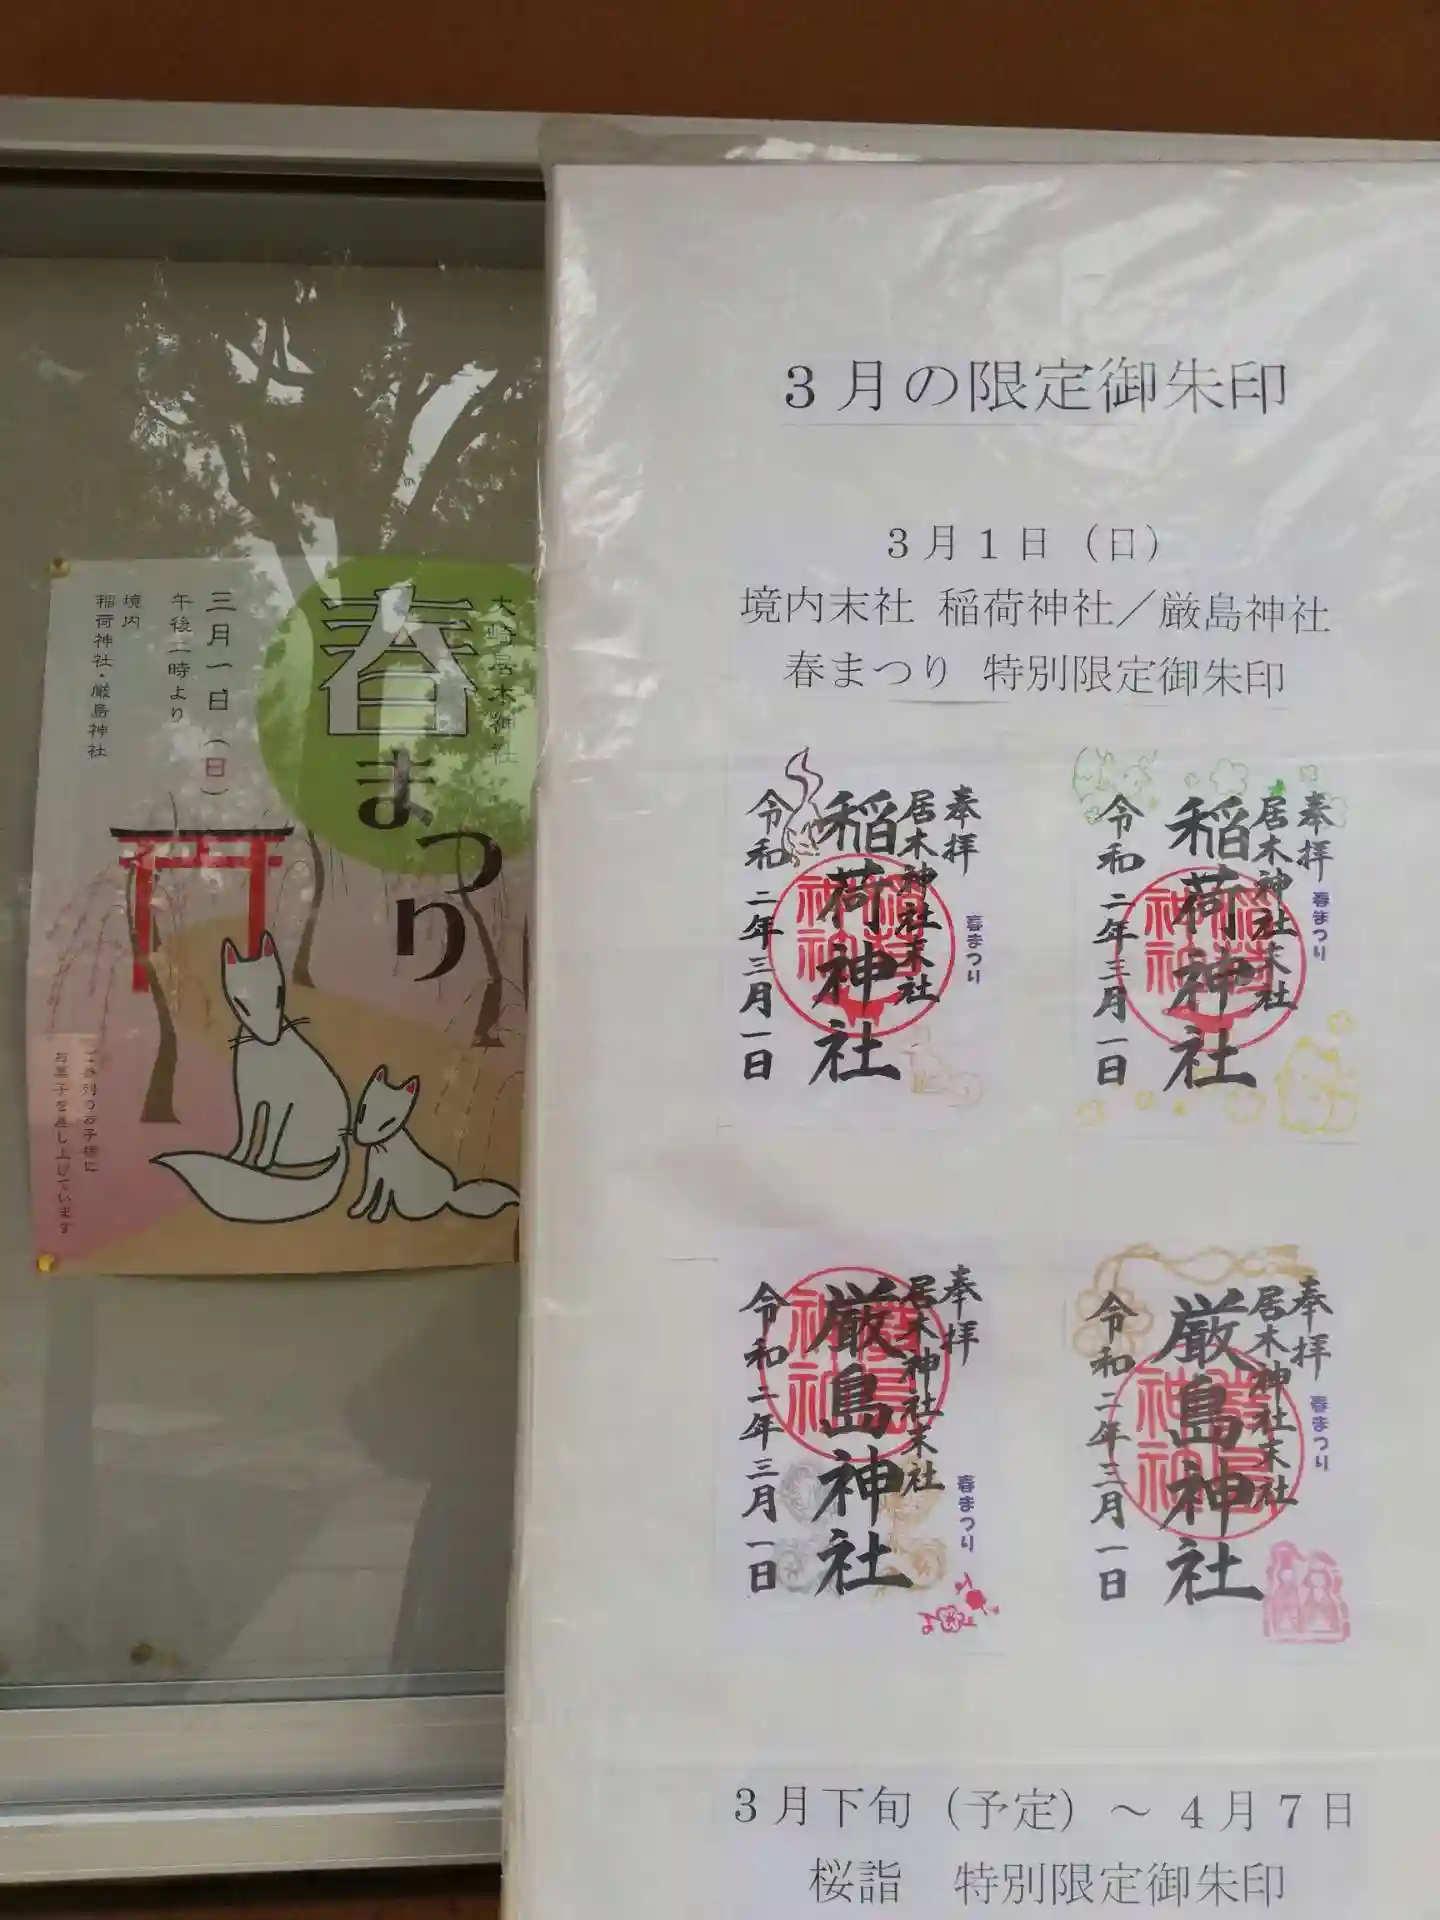 3月の限定御朱印
3月1日（日）
境内末社 稲荷神社／厳島神社
春まつり 特別限定御朱印
奉拝
居木神社末社
稲荷神社
令和二年三月一日
春まつり
奉拝
居木神社末社
稲荷神社
令和二年三月一日
春まつり
奉拝
居木神社末社
厳島神社
令和二年三月一日
春まつり
奉拝
居木神社末社
厳島神社
令和二年三月一日
春まつり
3月下旬（予定）～4月7日
桜詣 特別限定御朱印
大崎居木神社
春まつり
三月一日（日）
午後二時より
境内
稲荷神社・厳島神社
ご参列のお子様に
お菓子を差し上げています